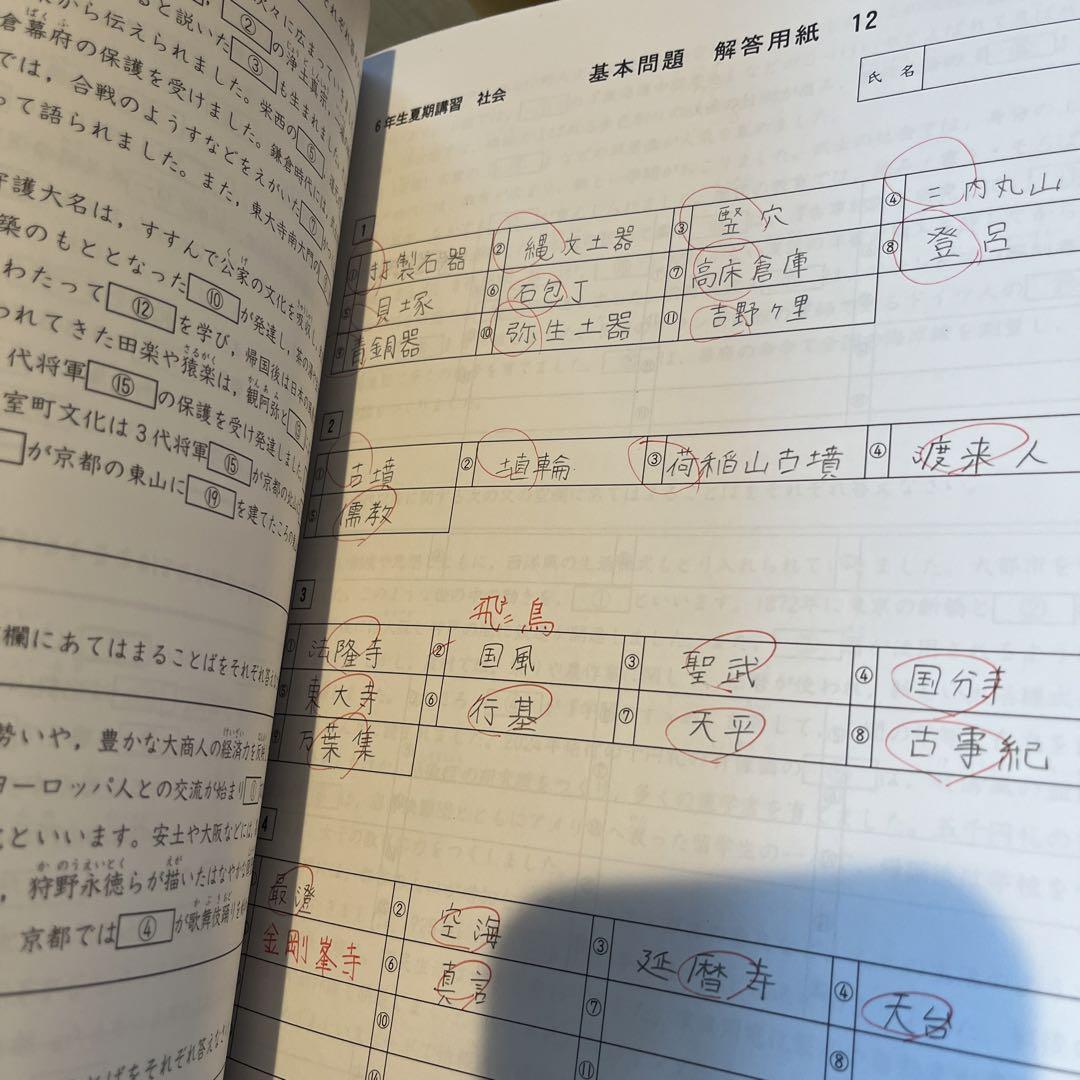 倉幕府の保護を受けました。栄西の⑤
では，合戦のようすなどをえがいた⑦
って語られました。また，東大寺南大門の
守護大名は，すすんで公家の文化を吸収し
築のもととなった⑩が発達し，茶の湯や
わたって⑫を学び，帰国後は日本の
われてきた田楽や猿楽は，観阿弥と⑬
代将軍⑮の保護を受け発達しました
室町文化は3代将軍⑮が京都の北山に
が京都の東山に⑲を建てたころの
欄にあてはまることばをそれぞれ答え
勢いや，豊かな大商人の経済力を反映
ヨーロッパ人との交流が始まり
といいます。安土や大阪などには，
，狩野永徳らが描いたはなやかな
京都では④が歌舞伎踊りを
とばをそれぞれ答えな
6年生夏期講習 社会
基本問題 解答用紙 12
氏名
1
① 打製石器 ② 縄文土器 ③ 竪穴 ④ 三内丸山
⑤ 貝塚 ⑥ 石包丁 ⑦ 高床倉庫 ⑧ 登呂
⑨ 青銅器 ⑩ 弥生土器 ⑪ 吉野ヶ里
2
① 古墳 ② 埴輪 ③ 稲荷山古墳 ④ 渡来人
⑤ 儒教
3
飛鳥
① 法隆寺 ② 国風 ③ 聖武 ④ 国分寺
⑤ 東大寺 ⑥ 行基 ⑦ 天平 ⑧ 古事紀
⑨ 万葉集
4
最澄 ② 空海 ③ 延暦寺 ④ 天台
金剛峯寺 ⑥ 真言 ⑦ ⑧
⑩ ⑪